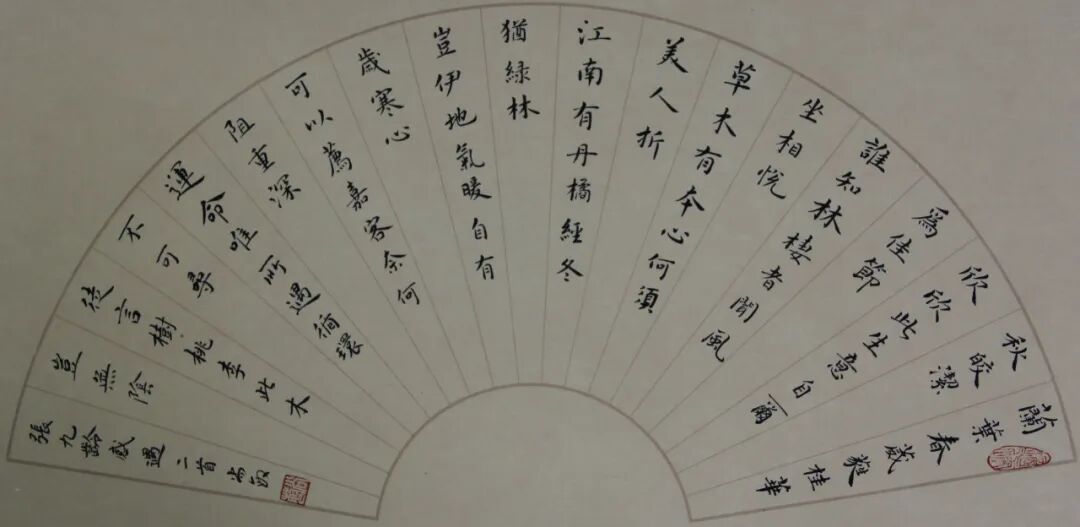 蘭葉春葳蕤桂華
秋皎潔
欣欣此生意自爾
爲佳節
誰知林棲者聞風
坐相悅
草木有本心何須
美人折
江南有丹橘經冬
猶綠林
豈伊地氣暖自有
歲寒心
可以薦嘉客奈何
阻重深
運命唯所遇循環
不可尋
徒言樹桃李此木
豈無陰
張九齡感遇二首